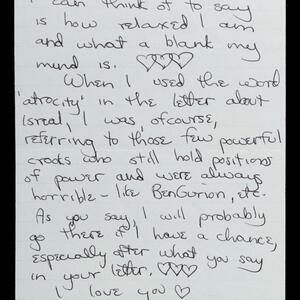 I can think of to say
is how relaxed I am
and what a blank my
mind is. ♡♡♡
When I used the word
'atrocity' in the letter about
Isreal, I was, ofcourse,
referring to those few powerful
crooks who still hold positions
of power and were always
horrible – like BenGurion, etc.
As you say, I will probably
go there if I have a chance,
especially after what you say
in your letter. ♡♡♡
I love you ♡